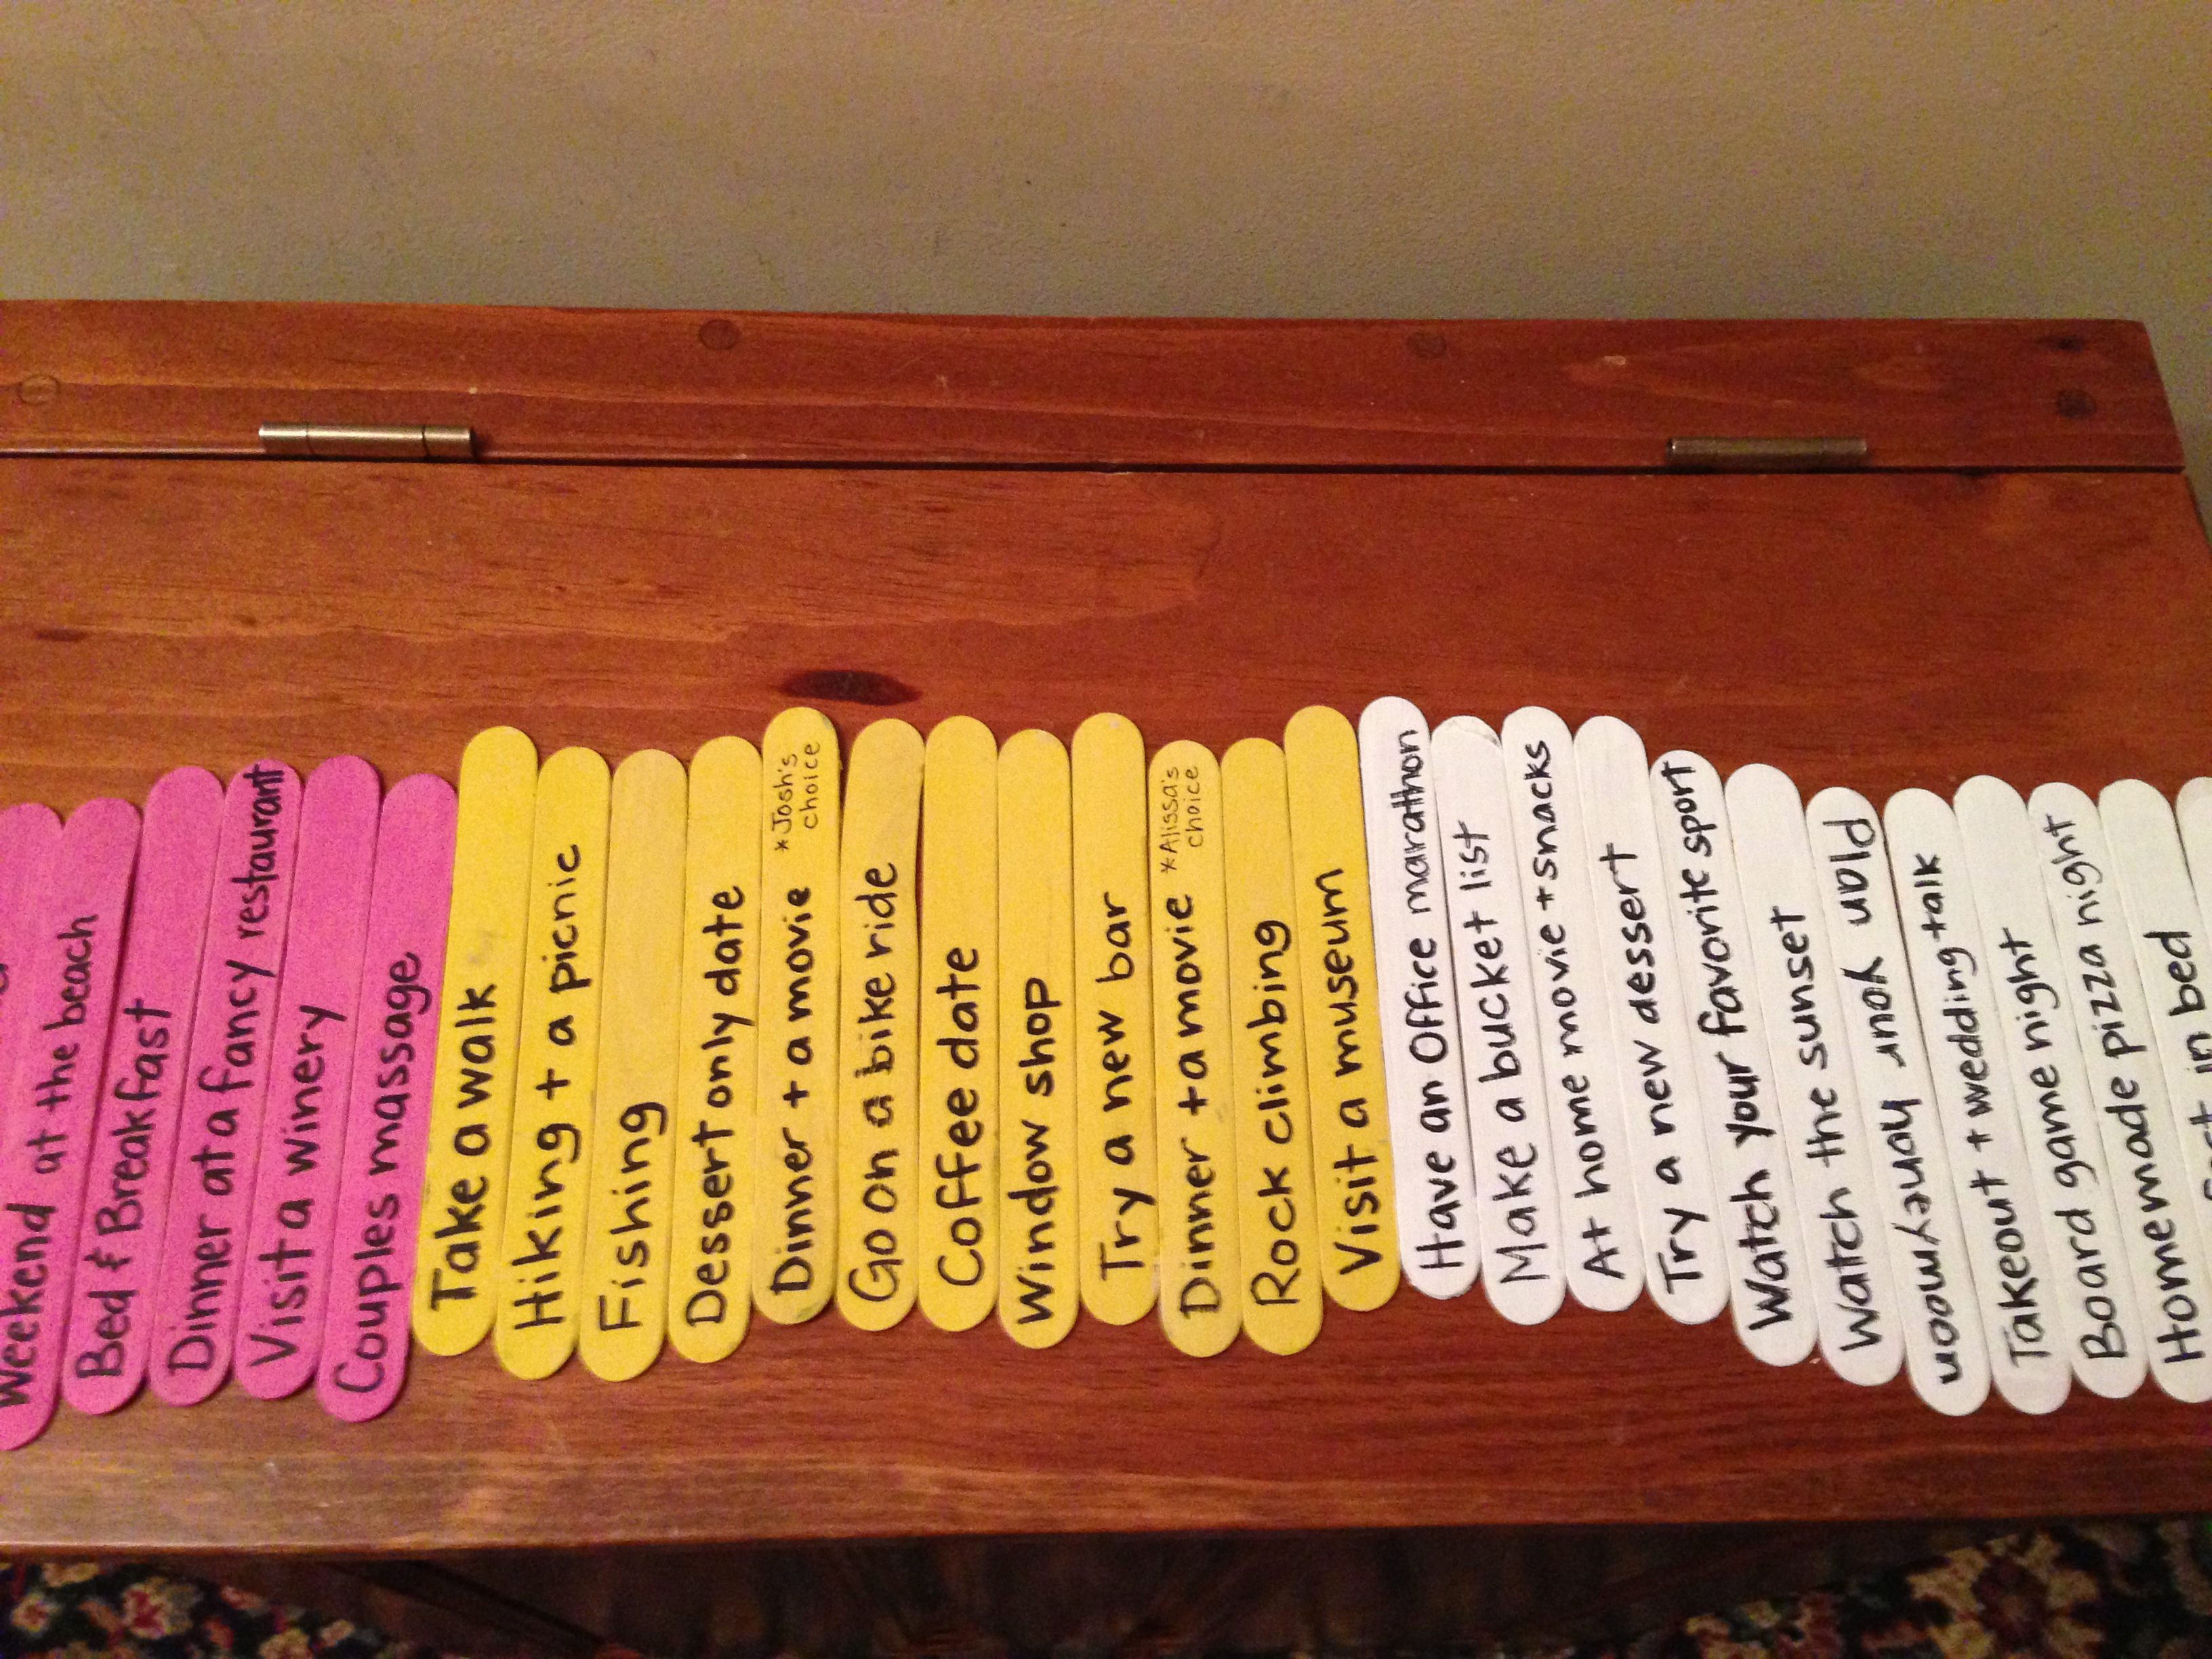 Weekend at the beach
Bed & Breakfast
Dinner at a fancy restaurant
Visit a winery
Couples massage
Take a walk
Hiking + a picnic
Fishing
Dessert only date
Dinner + a movie *Josh's choice
Go on a bike ride
Coffee date
Window shop
Try a new bar
Dinner + a movie *Alissa's choice
Rock climbing
Visit a museum
Have an Office marathon
Make a bucket list
At home movie + snacks
Try a new dessert
Watch your favorite sport
Watch the sunset
Plan your honeymoon
Takeout + wedding talk
Board game night
Homemade pizza night
in bed